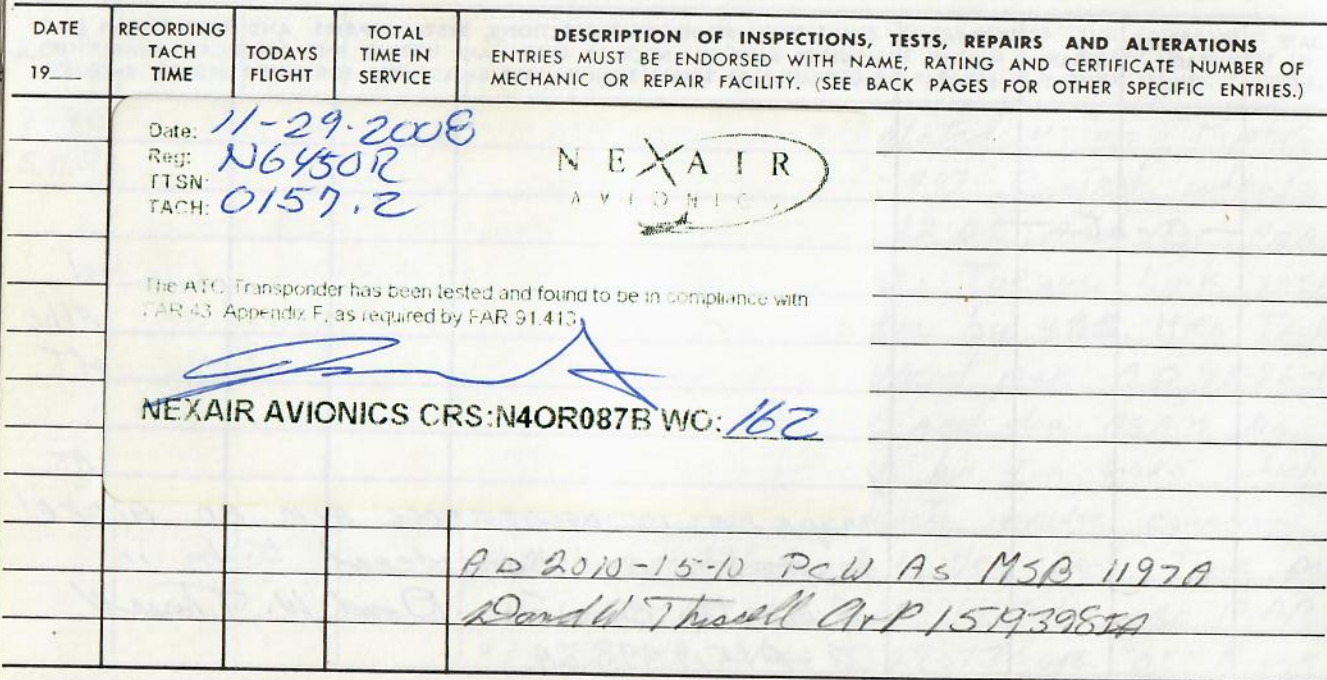 DATE
19__
RECORDING
TACH
TIME
TODAYS
FLIGHT
TOTAL
TIME IN
SERVICE
DESCRIPTION OF INSPECTIONS, TESTS, REPAIRS AND ALTERATIONS
ENTRIES MUST BE ENDORSED WITH NAME, RATING AND CERTIFICATE NUMBER OF
MECHANIC OR REPAIR FACILITY. (SEE BACK PAGES FOR OTHER SPECIFIC ENTRIES.)
Date: 11-29-2008
Reg: N6450R
TTSN:
TACH: 0157.2
NEXAIR
AVIONICS
The ATC Transponder has been tested and found to be in compliance with
FAR 43 Appendix F, as required by FAR 91.413
NEXAIR AVIONICS CRS:N4OR087B WO: 162
AD 2010-15-10 PCW As MSB 1197A
David W A+P 1519398IA